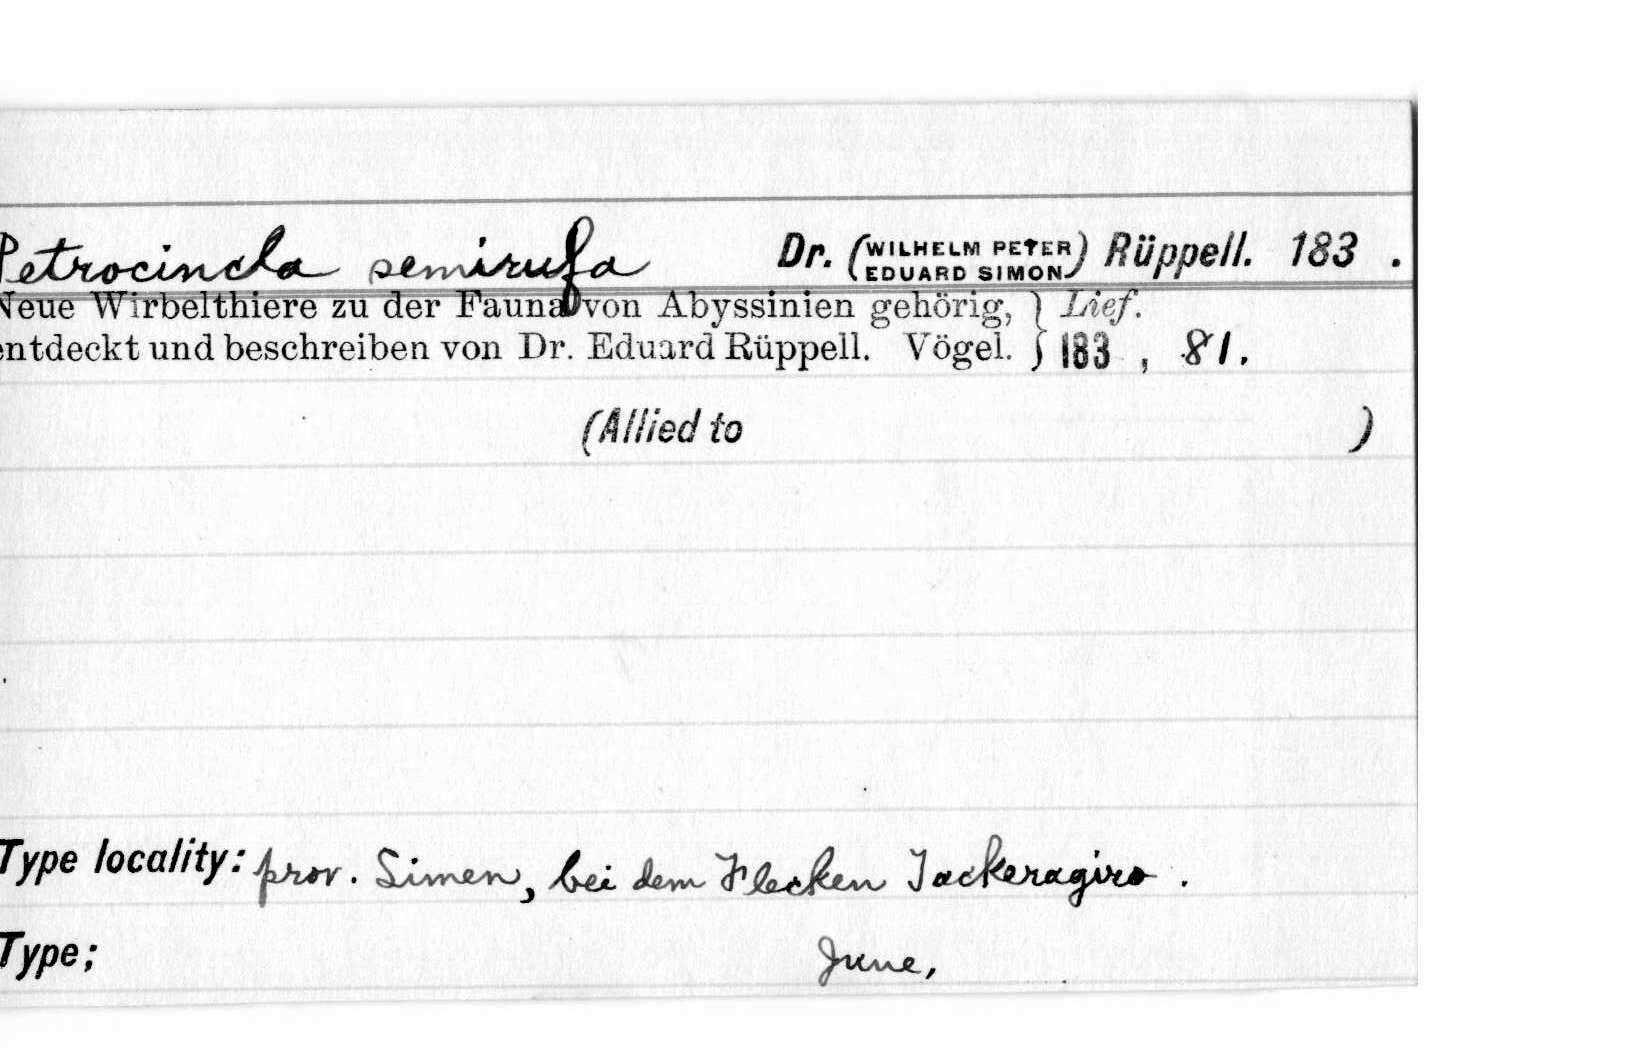 Petrocincla semirufa Dr. (WILHELM PETER EDUARD SIMON) Rüppell. 183 .
Neue Wirbelthiere zu der Fauna von Abyssinien gehörig, } Lief.
entdeckt und beschreiben von Dr. Eduard Rüppell. Vögel. } 183 , 81.
(Allied to )
Type locality: prov. Simen, bei dem Flecken Tackeragiro .
Type; June,